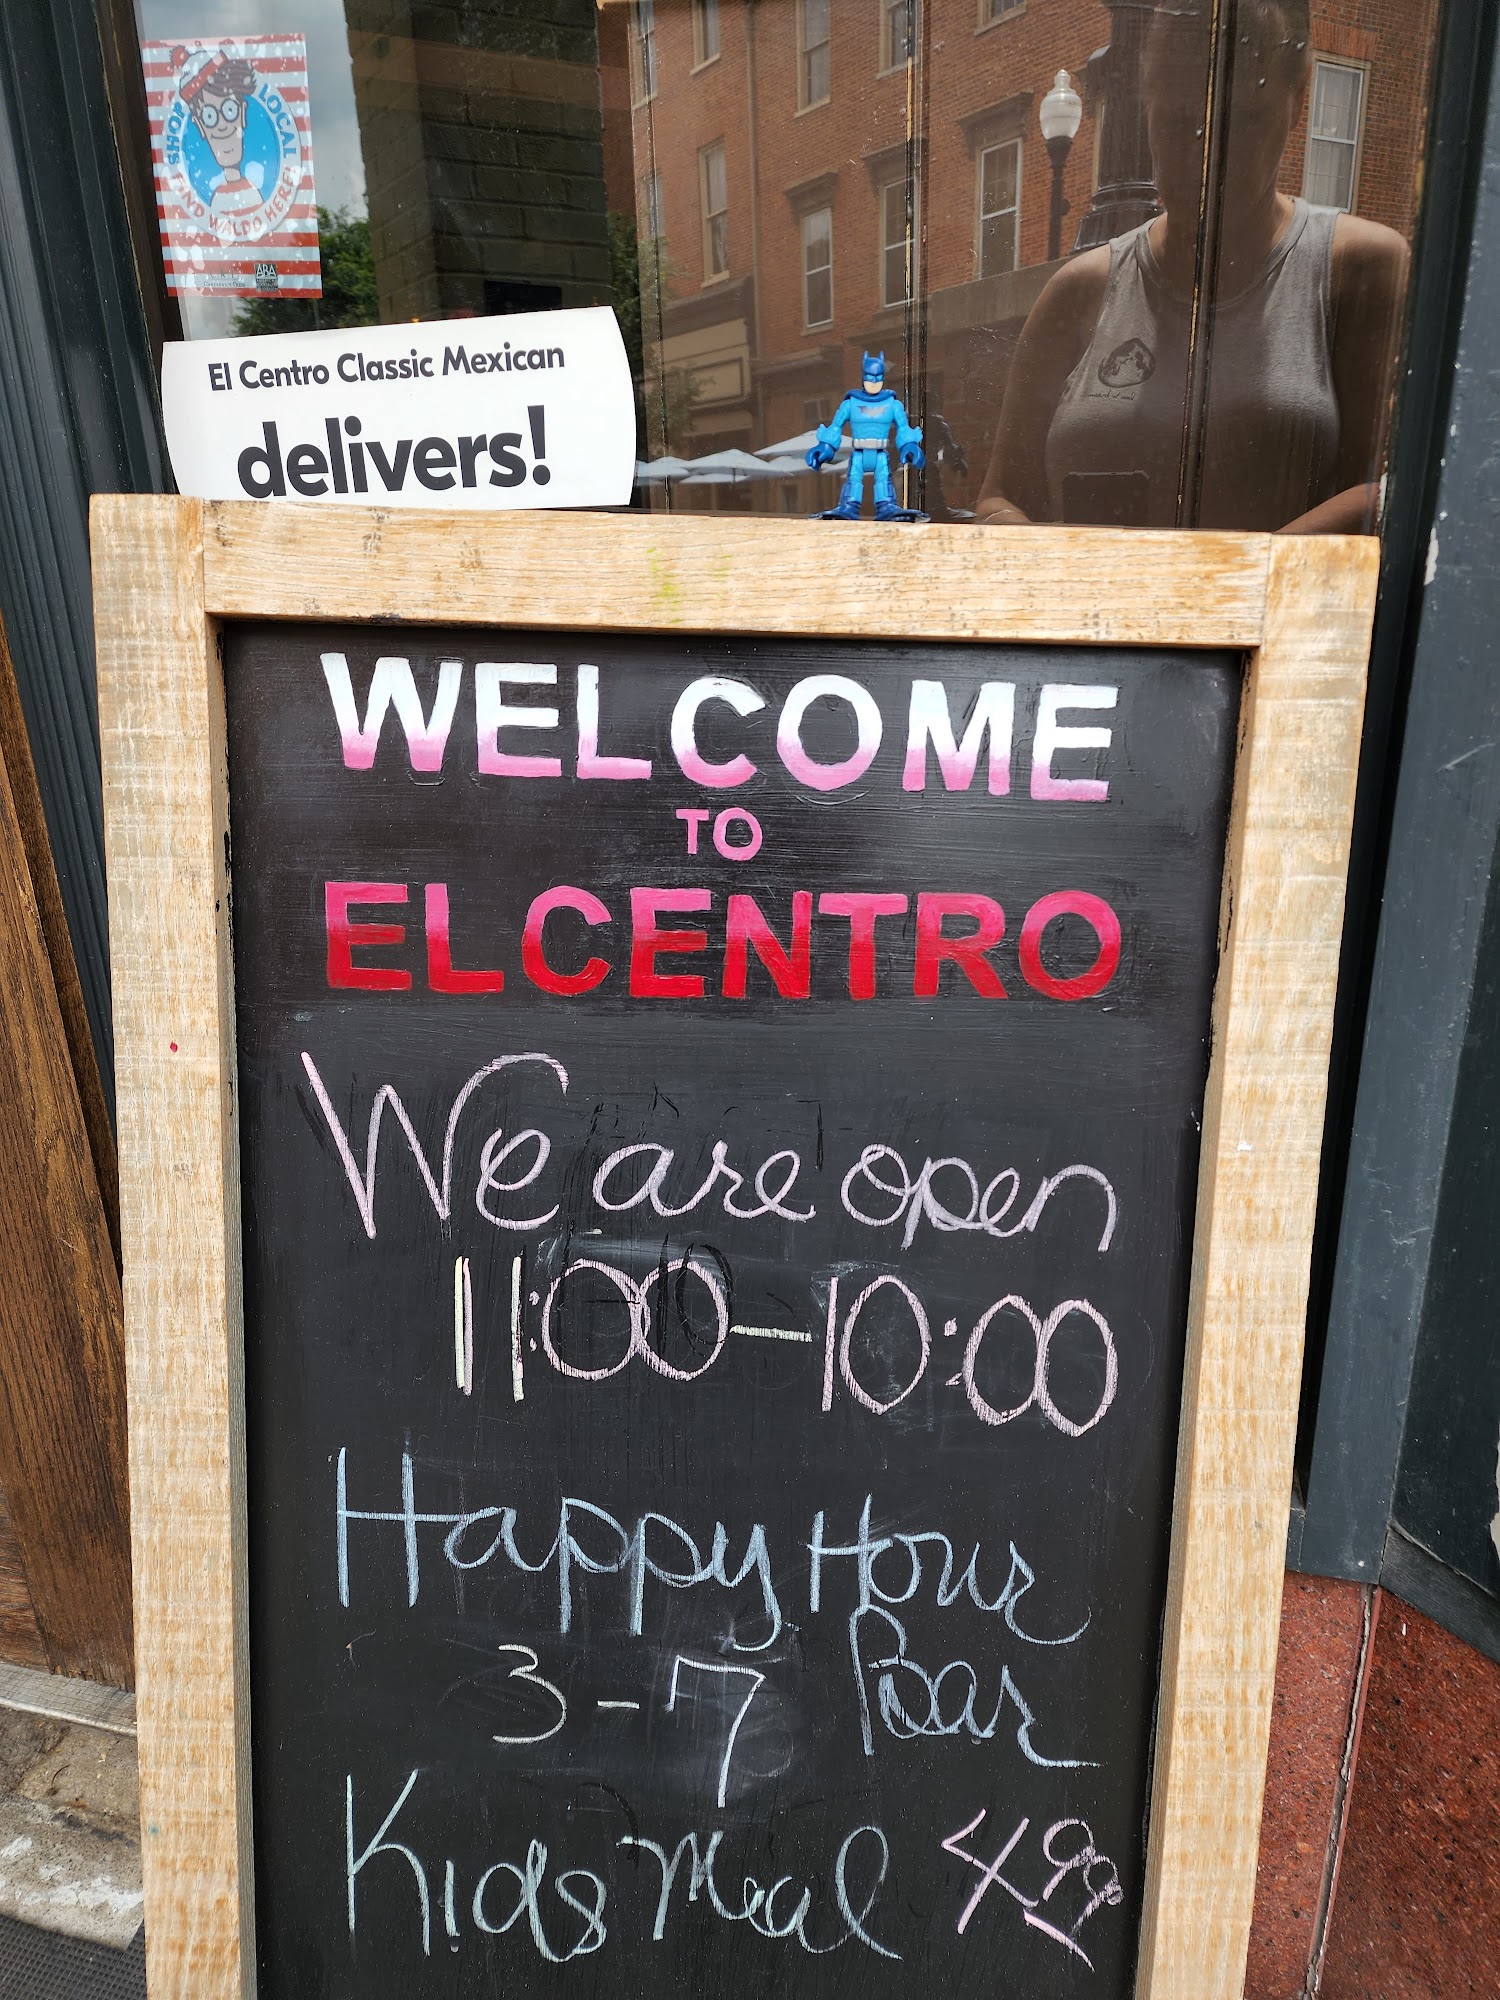 SHOP LOCAL
FIND WALDO HERE!
ABA
El Centro Classic Mexican
delivers!
WELCOME
TO
EL CENTRO
We are open
11:00-10:00
Happy Hour
3-7 Bar
Kids Meal 4.99